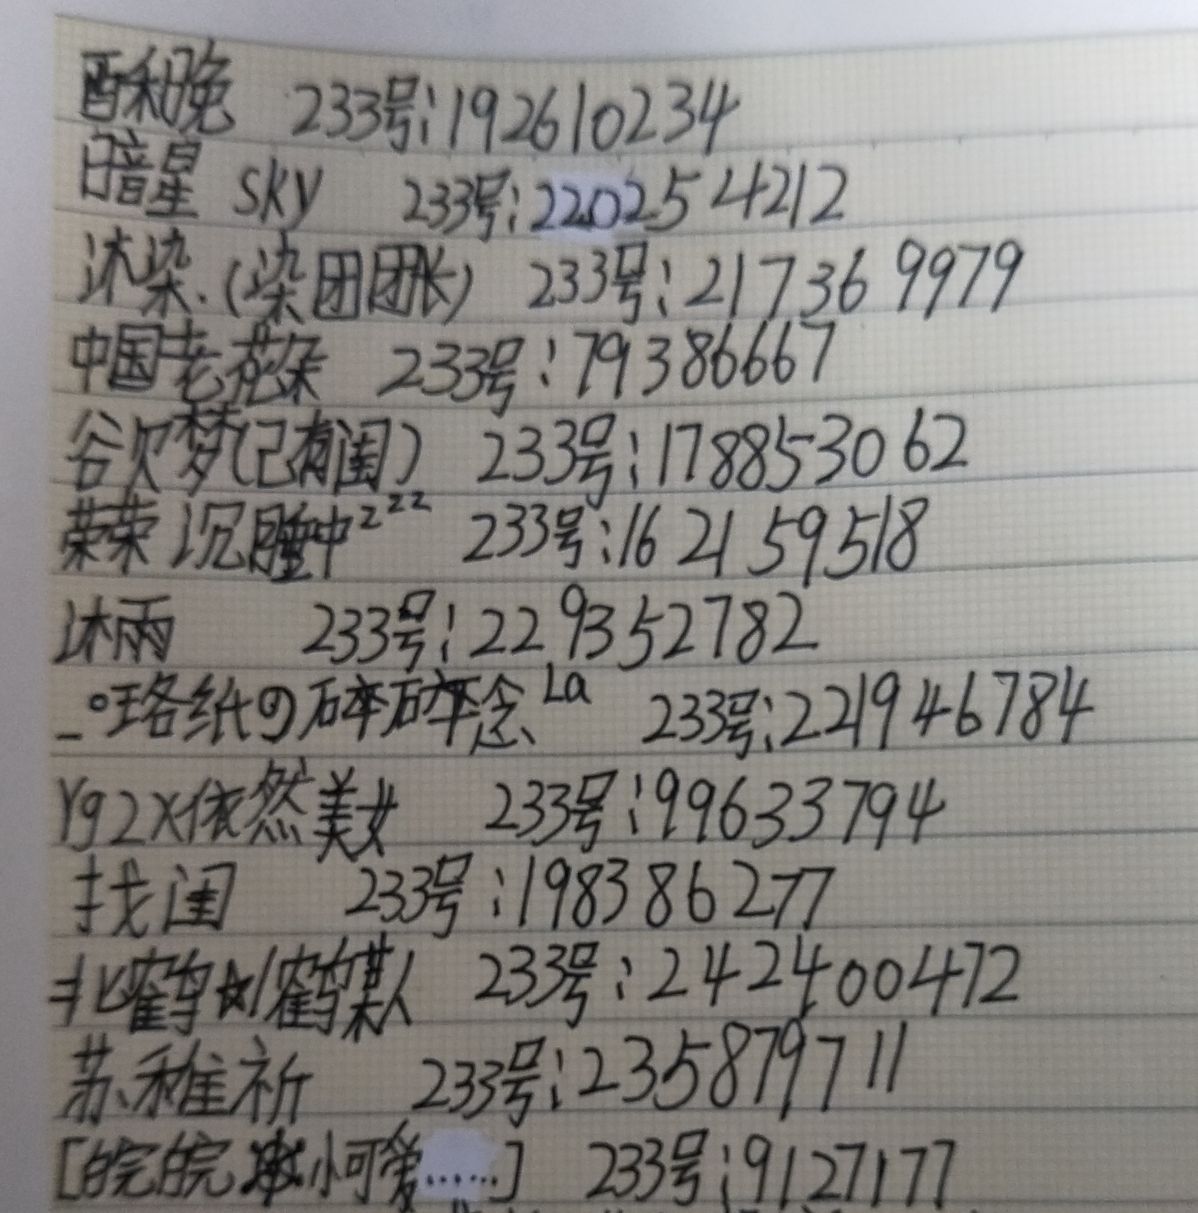 酥和晚 233号:192610234
暗星 sky 233号:220254212
沐染.(染团团长) 233号:2173699979
中国老花朵 233号:79386667
谷欠梦(已有闺) 233号:1788853062
荣荣沉睡中zzz 233号:162159518
沐雨 233号:229352782
_°珞纸の碎碎念La 233号:221946784
Yg2x依然美女 233号:99633794
找闺 233号:198386277
北鹤☆/鹤某人 233号:242400472
苏稚祈 233号:235879711
[皖皖 小可爱……] 233号:9127177